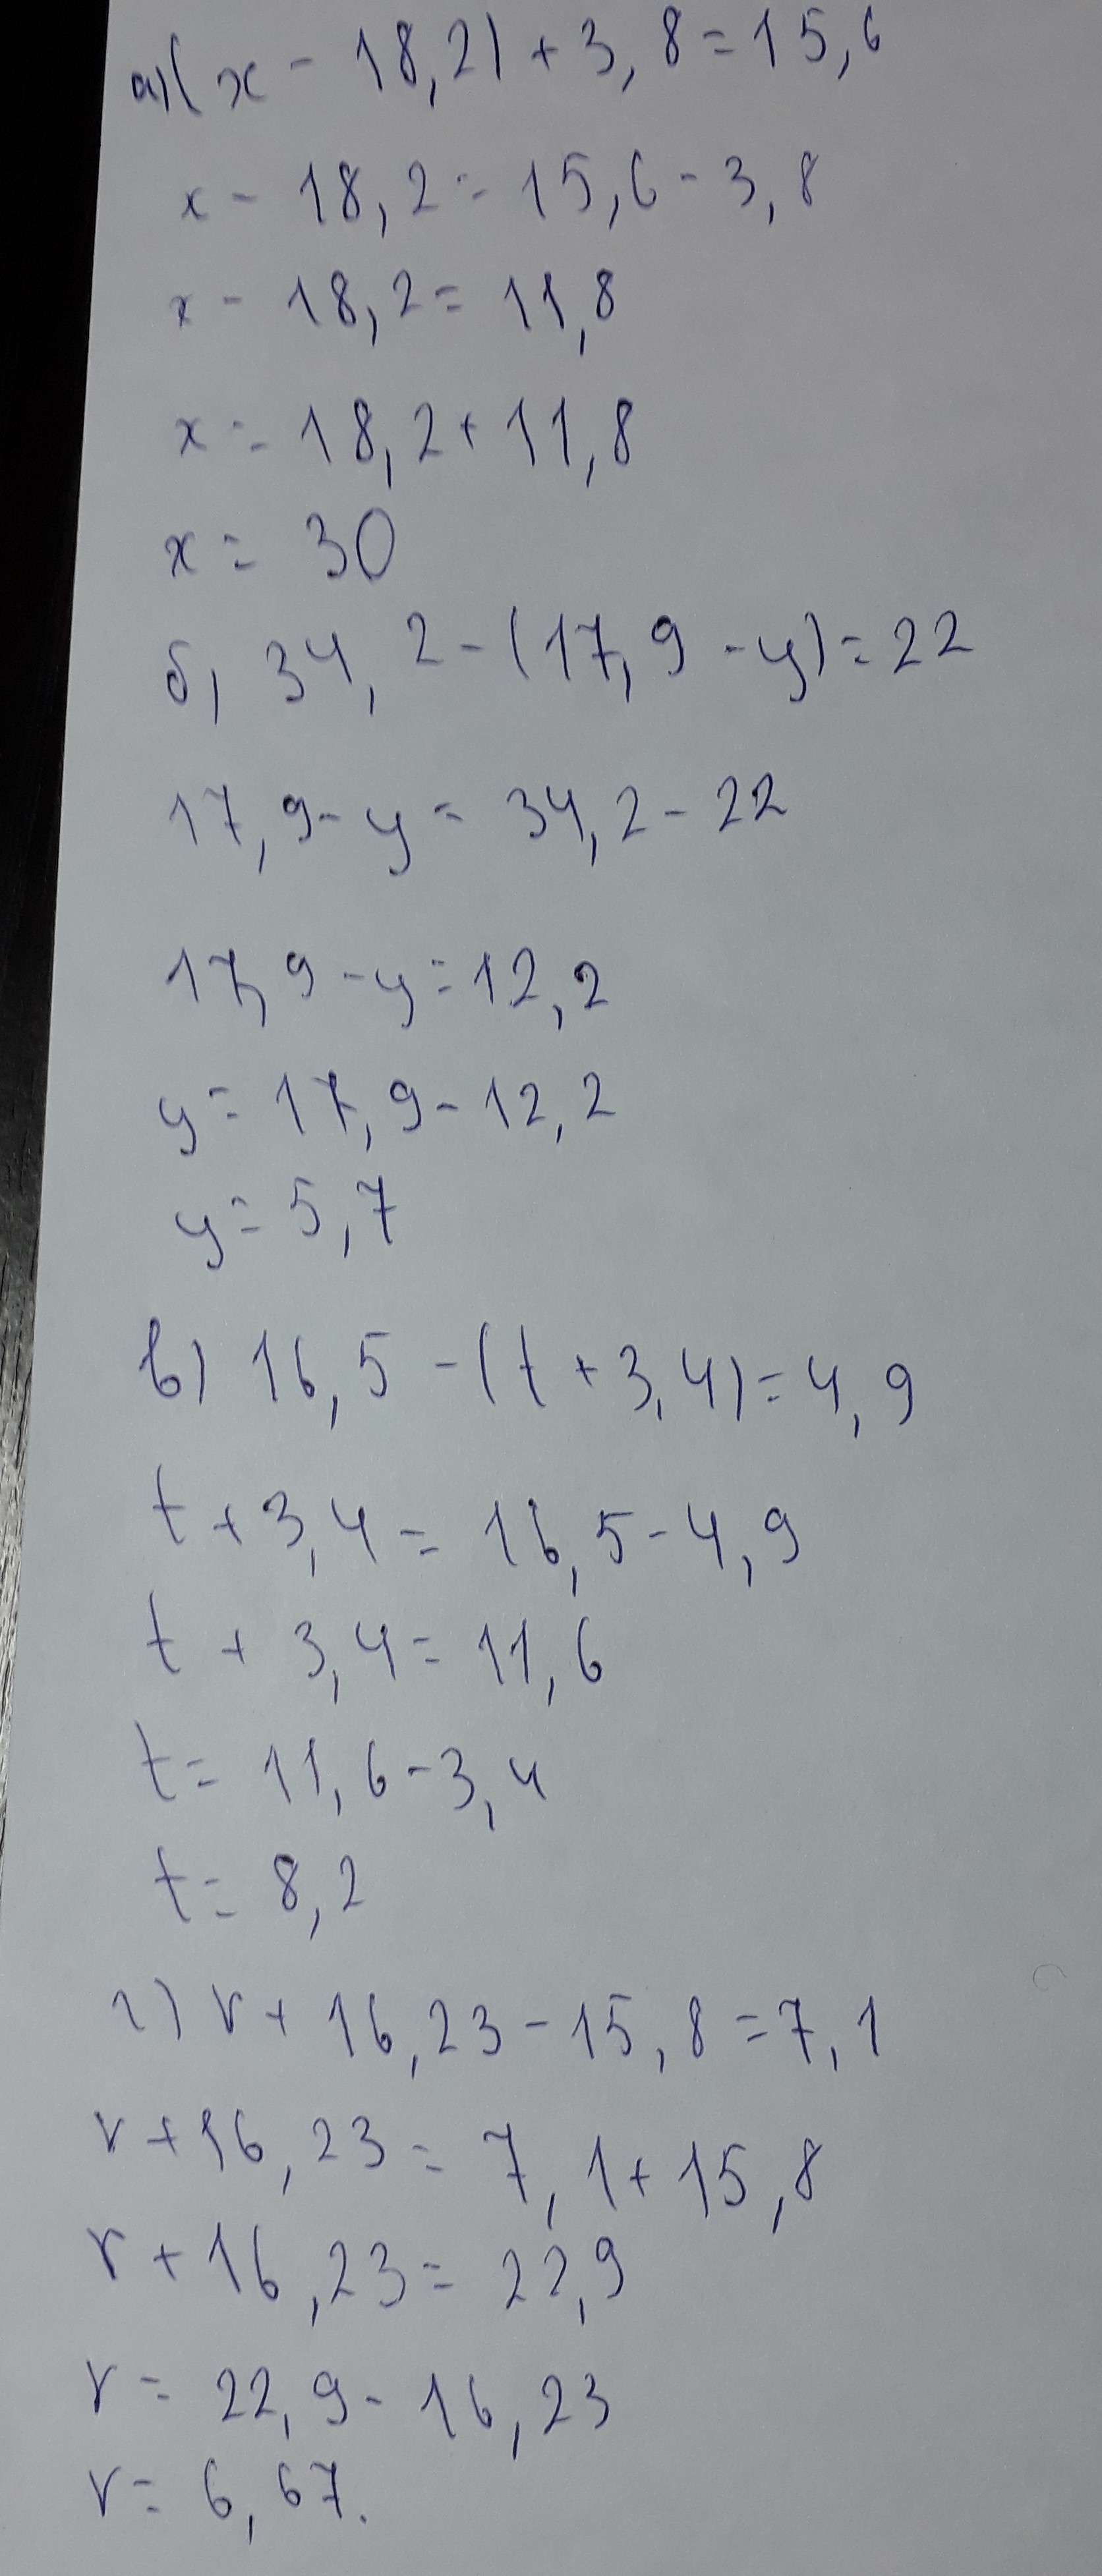 а) (x - 18,2) + 3,8 = 15,6
x - 18,2 = 15,6 - 3,8
x - 18,2 = 11,8
x = 18,2 + 11,8
x = 30
б) 34,2 - (17,9 - y) = 22
17,9 - y = 34,2 - 22
17,9 - y = 12,2
y = 17,9 - 12,2
y = 5,7
в) 16,5 - (t + 3,4) = 4,9
t + 3,4 = 16,5 - 4,9
t + 3,4 = 11,6
t = 11,6 - 3,4
t = 8,2
г) r + 16,23 - 15,8 = 7,1
r + 16,23 = 7,1 + 15,8
r + 16,23 = 22,9
r = 22,9 - 16,23
r = 6,67.